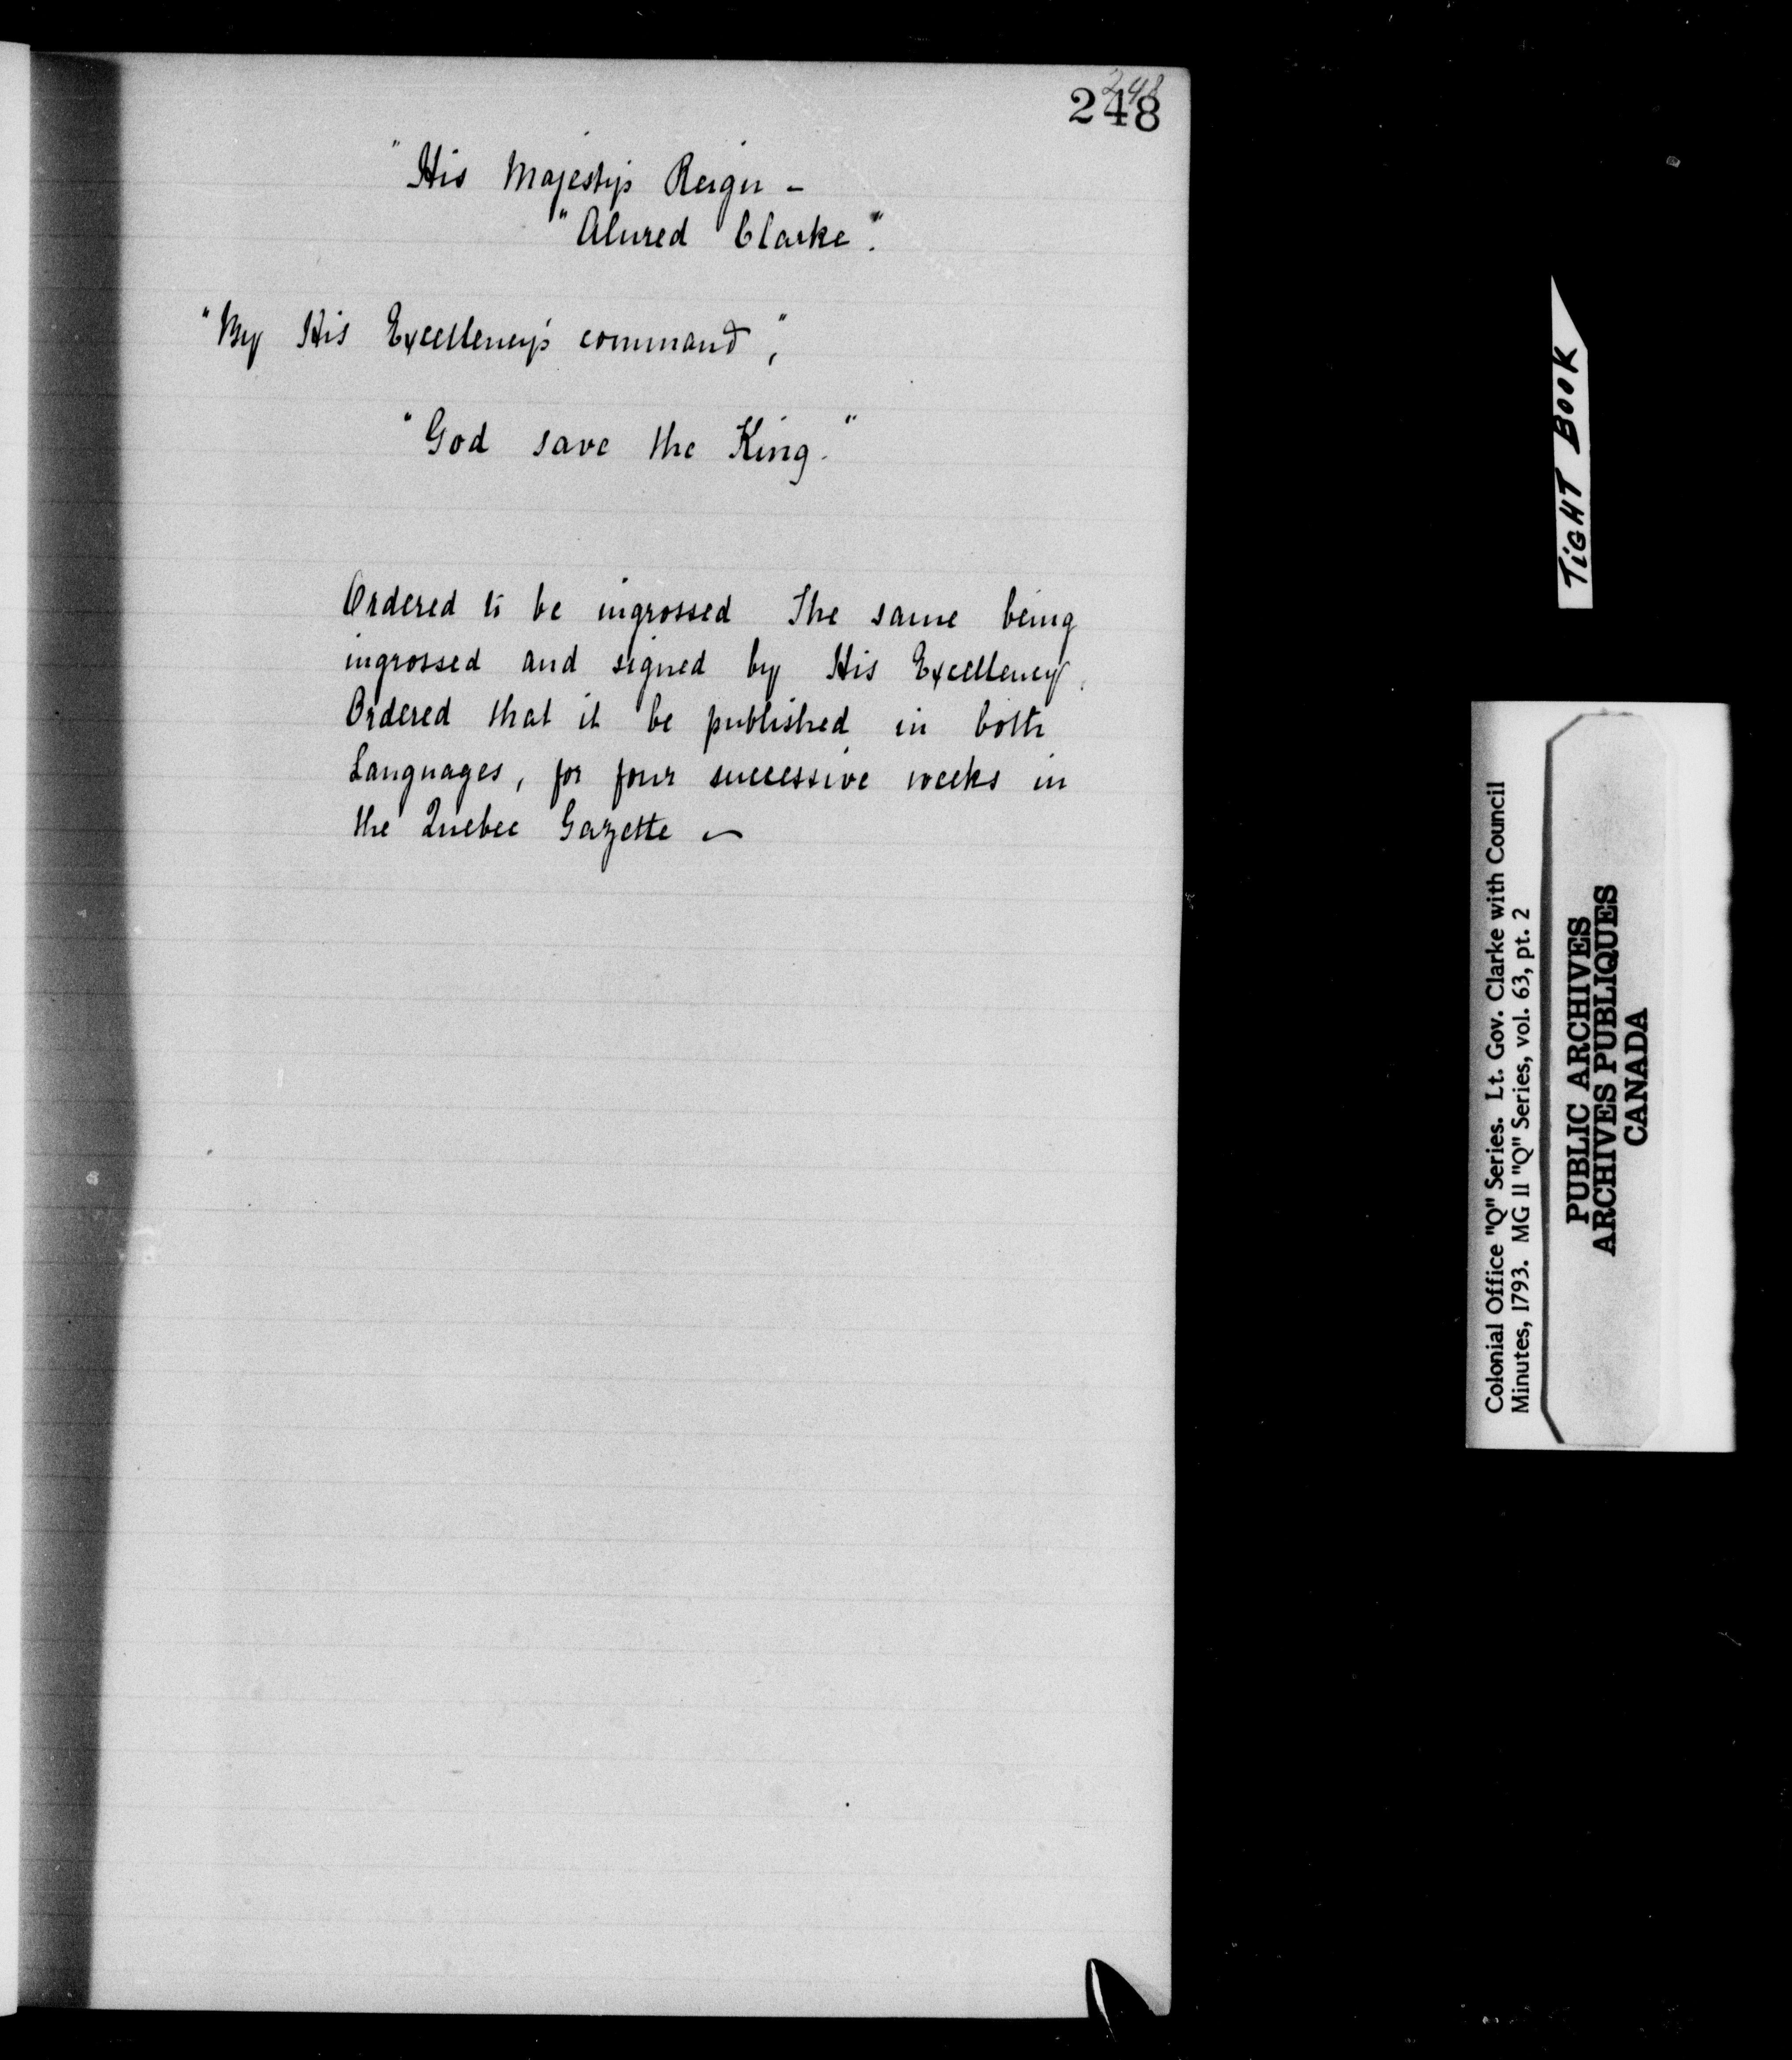 248
248
"His Majesty's Reign -
"Alured Clarke".
"By His Excellency's command,"
"God save the King."
Ordered to be ingrossed The same being
ingrossed and signed by His Excellency.
Ordered that it be published in both
Languages, for four successive weeks in
the Quebec Gazette ~
TIGHT BOOK
Colonial Office "Q" Series. Lt. Gov. Clarke with Council
Minutes, 1793. MG 11 "Q" Series, vol. 63, pt. 2
PUBLIC ARCHIVES
ARCHIVES PUBLIQUES
CANADA